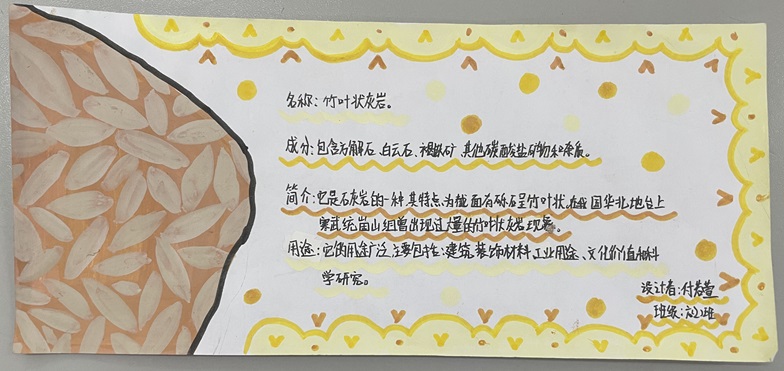 名称：竹叶状灰岩。
成分：包含方解石、白云石、褐铁矿、其他碳酸盐矿物和杂质。
简介：它是石灰岩的一种，其特点为截面有砾石呈竹叶状，在我国华北地台上
寒武统崮山组曾出现过大量的竹叶状灰岩现象。
用途：它的用途广泛，主要包括：建筑、装饰材料、工业用途、文化价值和科
学研究。
设计者：付
班级：